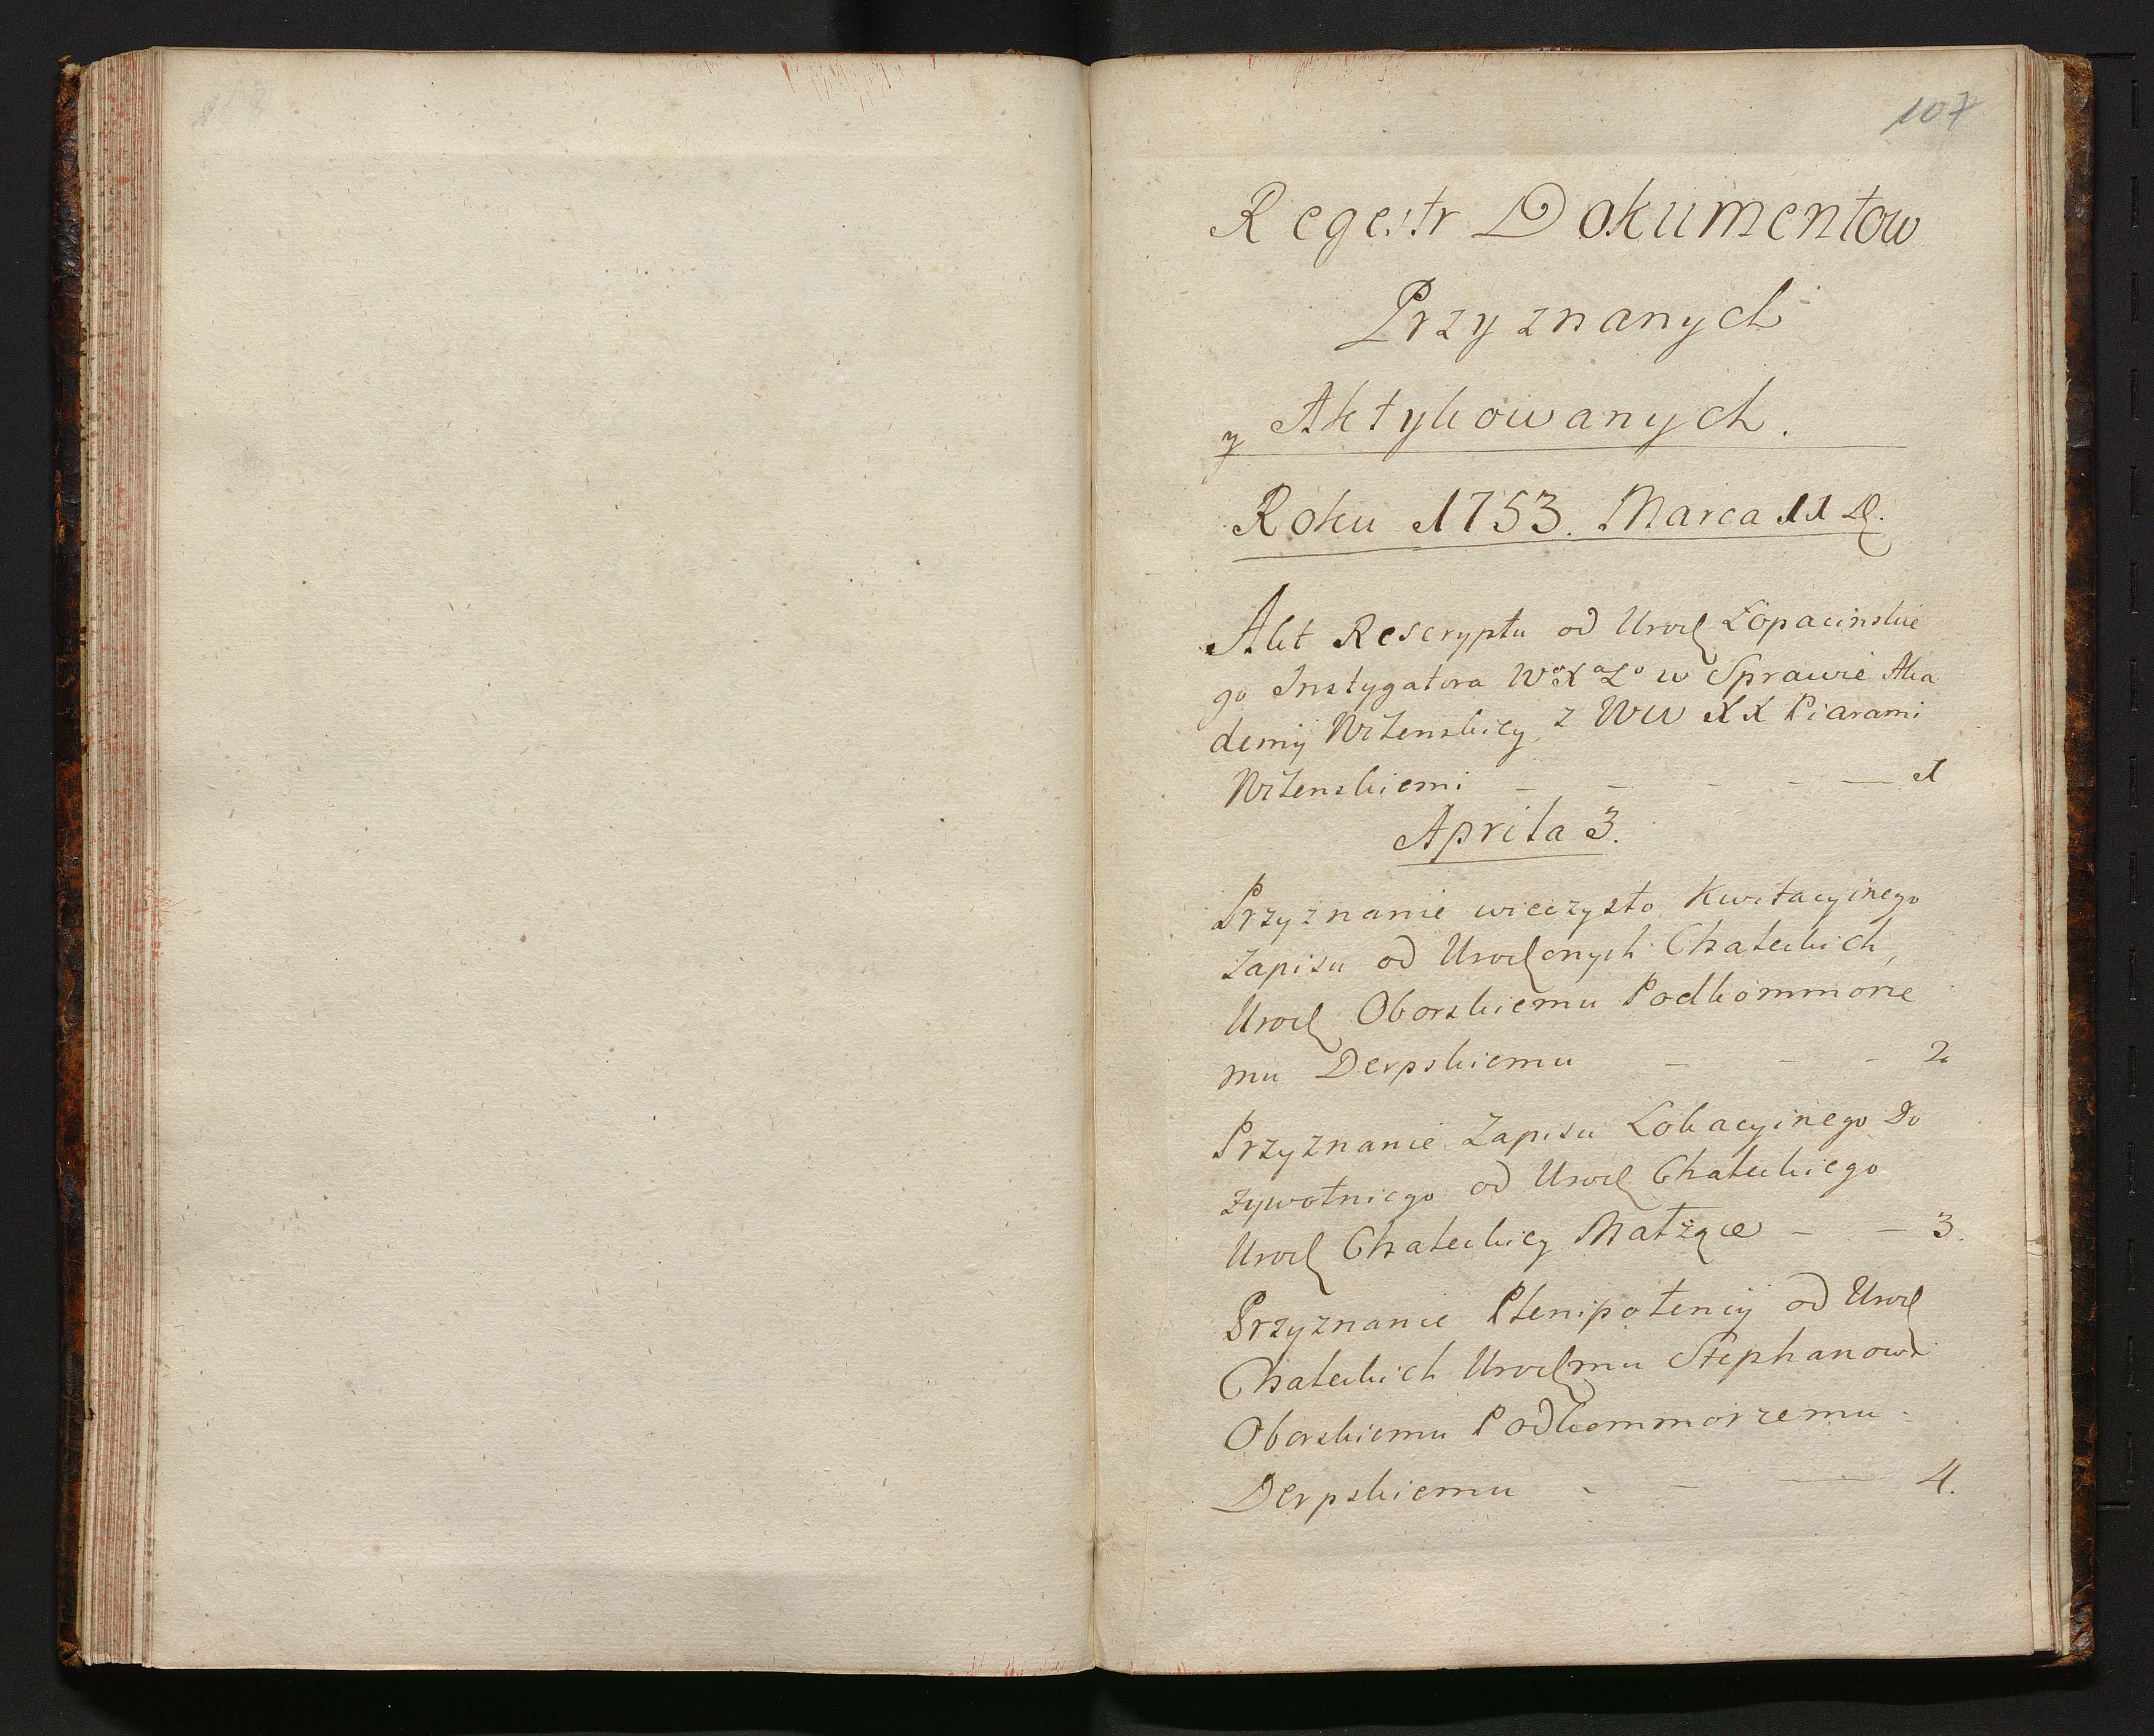 107
Regestr Dokumentow
Przyznanych
y Aktykowanych.
Roku 1753. Marca 11 D.
Akt Rescryptu od Urodz Łopacinskie
go Instygatora Wo Xa Lo w Sprawie Aka
demij Wileńskiey, z WW XX Piarami
Wileńskiemi - - - - - 1
Aprila 3.
Przyznanie wieczysto Kwitacyinego
Zapisu od Urodzonych Chaleckich,
Urodz Oborskiemu Podkommorze
mu Derpskiemu - - - 2.
Przyznanie Zapisu Lokacyinego Do
żywotniego od Urodz Chaleckiego
Urodz Chaleckiey Małżące - - 3.
Przyznanie Plenipotencij od Urodz
Chaleckich Urodzmu Stephanowi
Oborskiemu Podkommorzemu
Derpskiemu - - - 4.